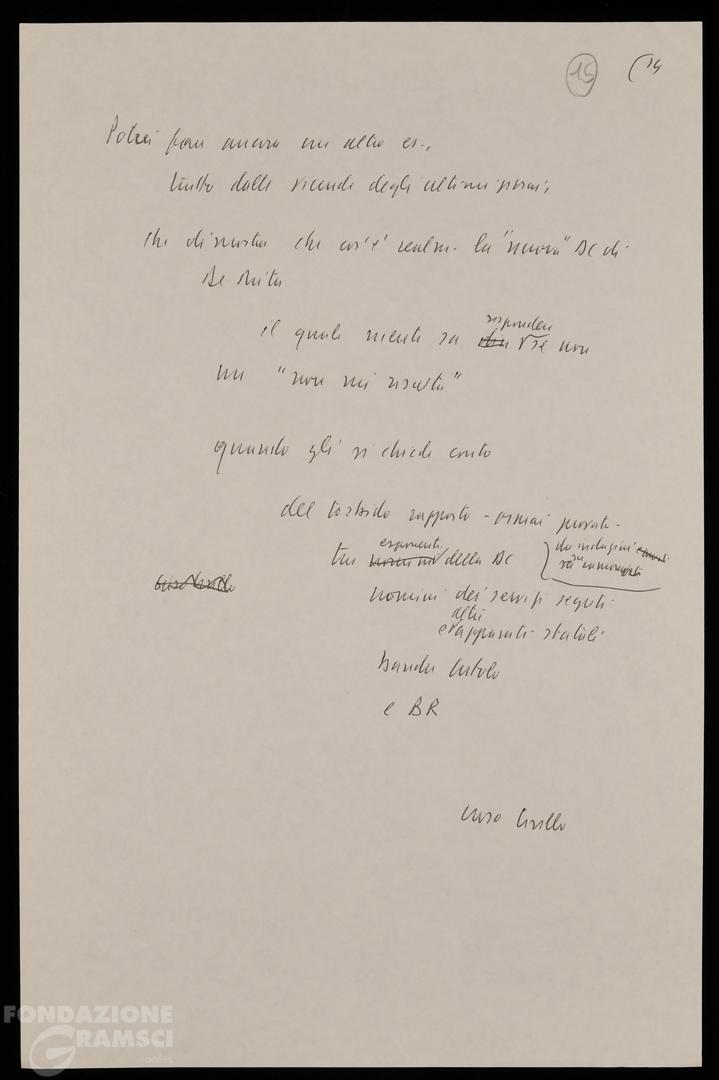 15 (14
Potrei fare ancora un altro es.,
tratto dalle vicende degli ultimi giorni,
che dimostra che cos'è realm. la "nuova" DC di
De Mita
il quale niente sa rispondere se non
un "non mi risulta"
quando gli si chiede conto
del torbido rapporto - ormai provato -
da indagini
tra uomini esponenti della DC
caso Cirillo
uomini dei servizi segreti
e altri apparati statali
banda Cutolo
e BR
caso Cirillo
FONDAZIONE
GRAMSCI
onlus